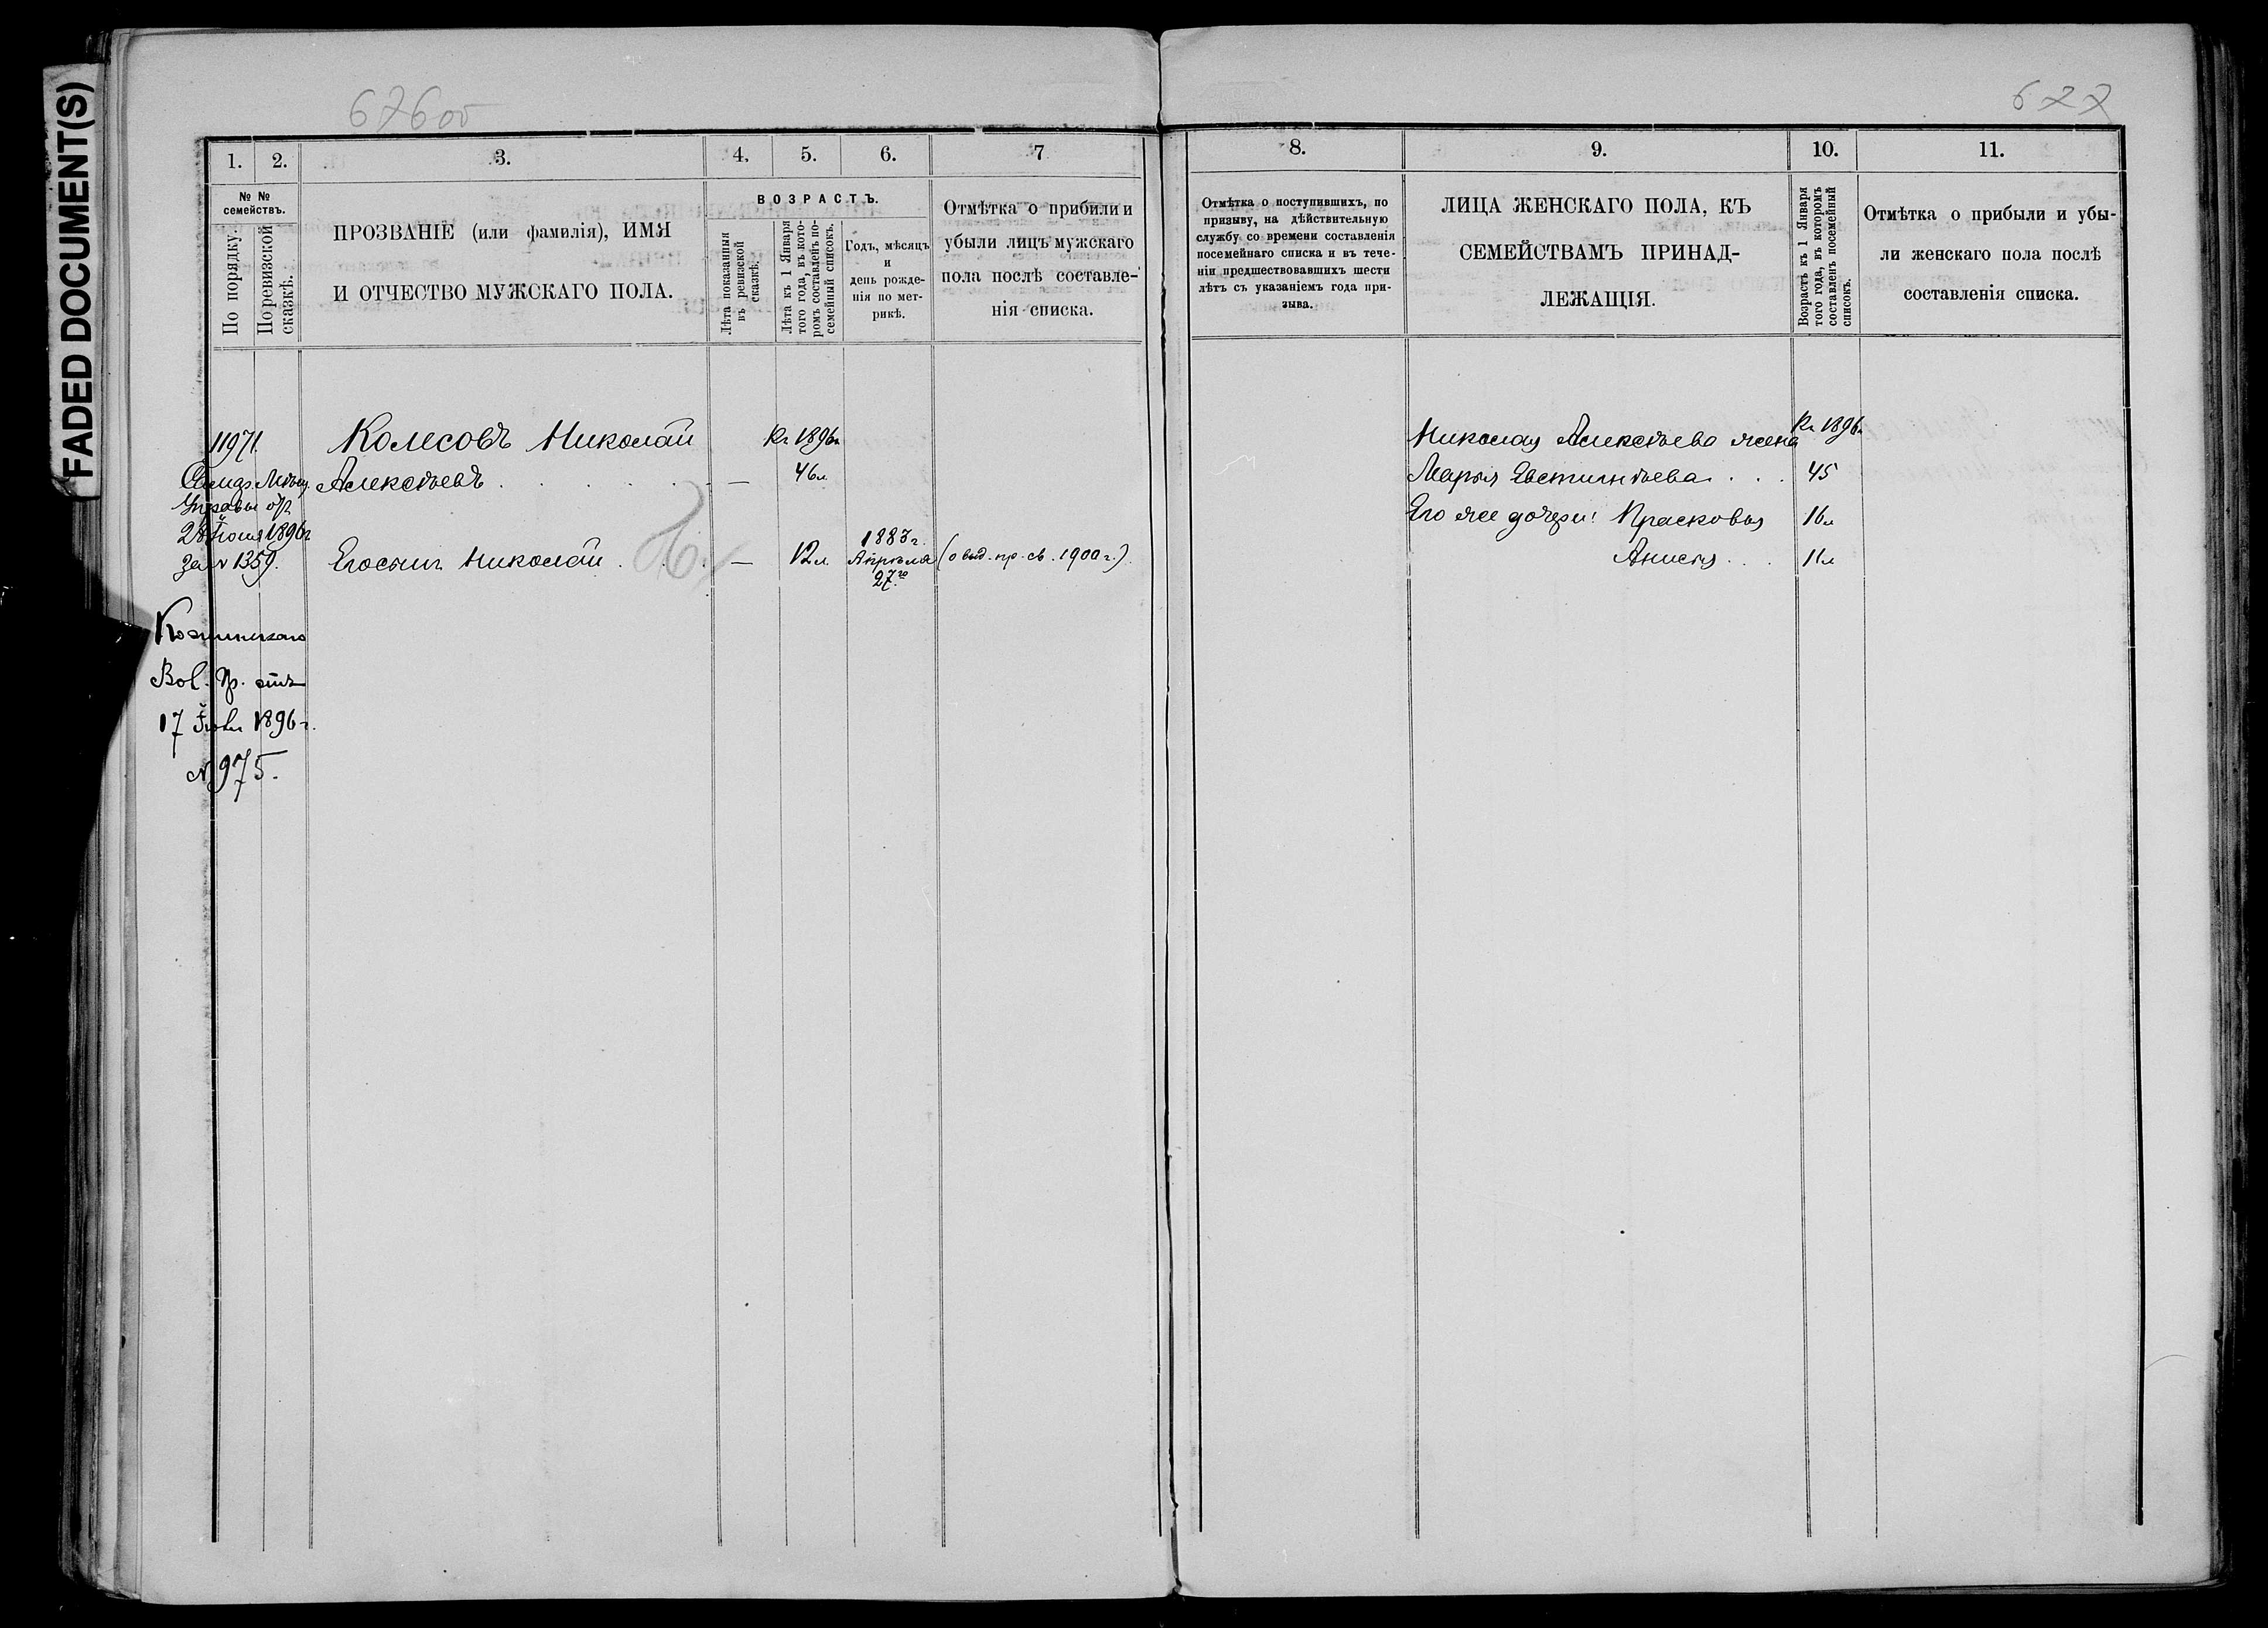 FADED DOCUMENT(S)
676об
1. 2. 3. 4. 5. 6. 7
№ №
семействъ.
По порядку.
По ревизской
сказкѣ.
ПРОЗВАНІЕ (или фамилія), ИМЯ
И ОТЧЕСТВО МУЖСКАГО ПОЛА.
ВОЗРАСТЪ.
Лѣта показанныя
въ ревизской
сказкѣ.
Лѣта къ 1 Января
того года, въ кото-
ромъ составленъ по-
семейный списокъ.
Годъ, мѣсяцъ
и
день рожде-
нія по мет-
рикѣ.
Отмѣтка о прибыли и
убыли лицъ мужскаго
пола послѣ составле-
нія списка.
11971.
Мѣщ.
Управы от
28 Іюня 1896 г
за № 1359.
Вол. Пр. отъ
17 1896 г.
№ 975.
Колесовъ Николай
Алексѣевъ
Его сынъ Николай
Къ 1896 г.
— 46 л
— 12 л.
1883 г.
Апрѣля
27го
(о выд. пр. св. 1900 г.)
677
8. 9. 10. 11.
Отмѣтка о поступившихъ, по
призыву, на дѣйствительную
службу со времени составленія
посемейнаго списка и въ тече-
ніи предшествовавшихъ шести
лѣтъ съ указаніемъ года при-
зыва.
ЛИЦА ЖЕНСКАГО ПОЛА, КЪ
СЕМЕЙСТВАМЪ ПРИНАД-
ЛЕЖАЩІЯ.
Возрастъ къ 1 Января
того года, въ которомъ
составленъ посемейный
списокъ.
Отмѣтка о прибыли и убы-
ли женскаго пола послѣ
составленія списка.
Николая Алексѣева жена Къ 1896 г.
Марья Евстигнѣева 45
Его же дочери: Прасковья 16 л
Анисья 11 л